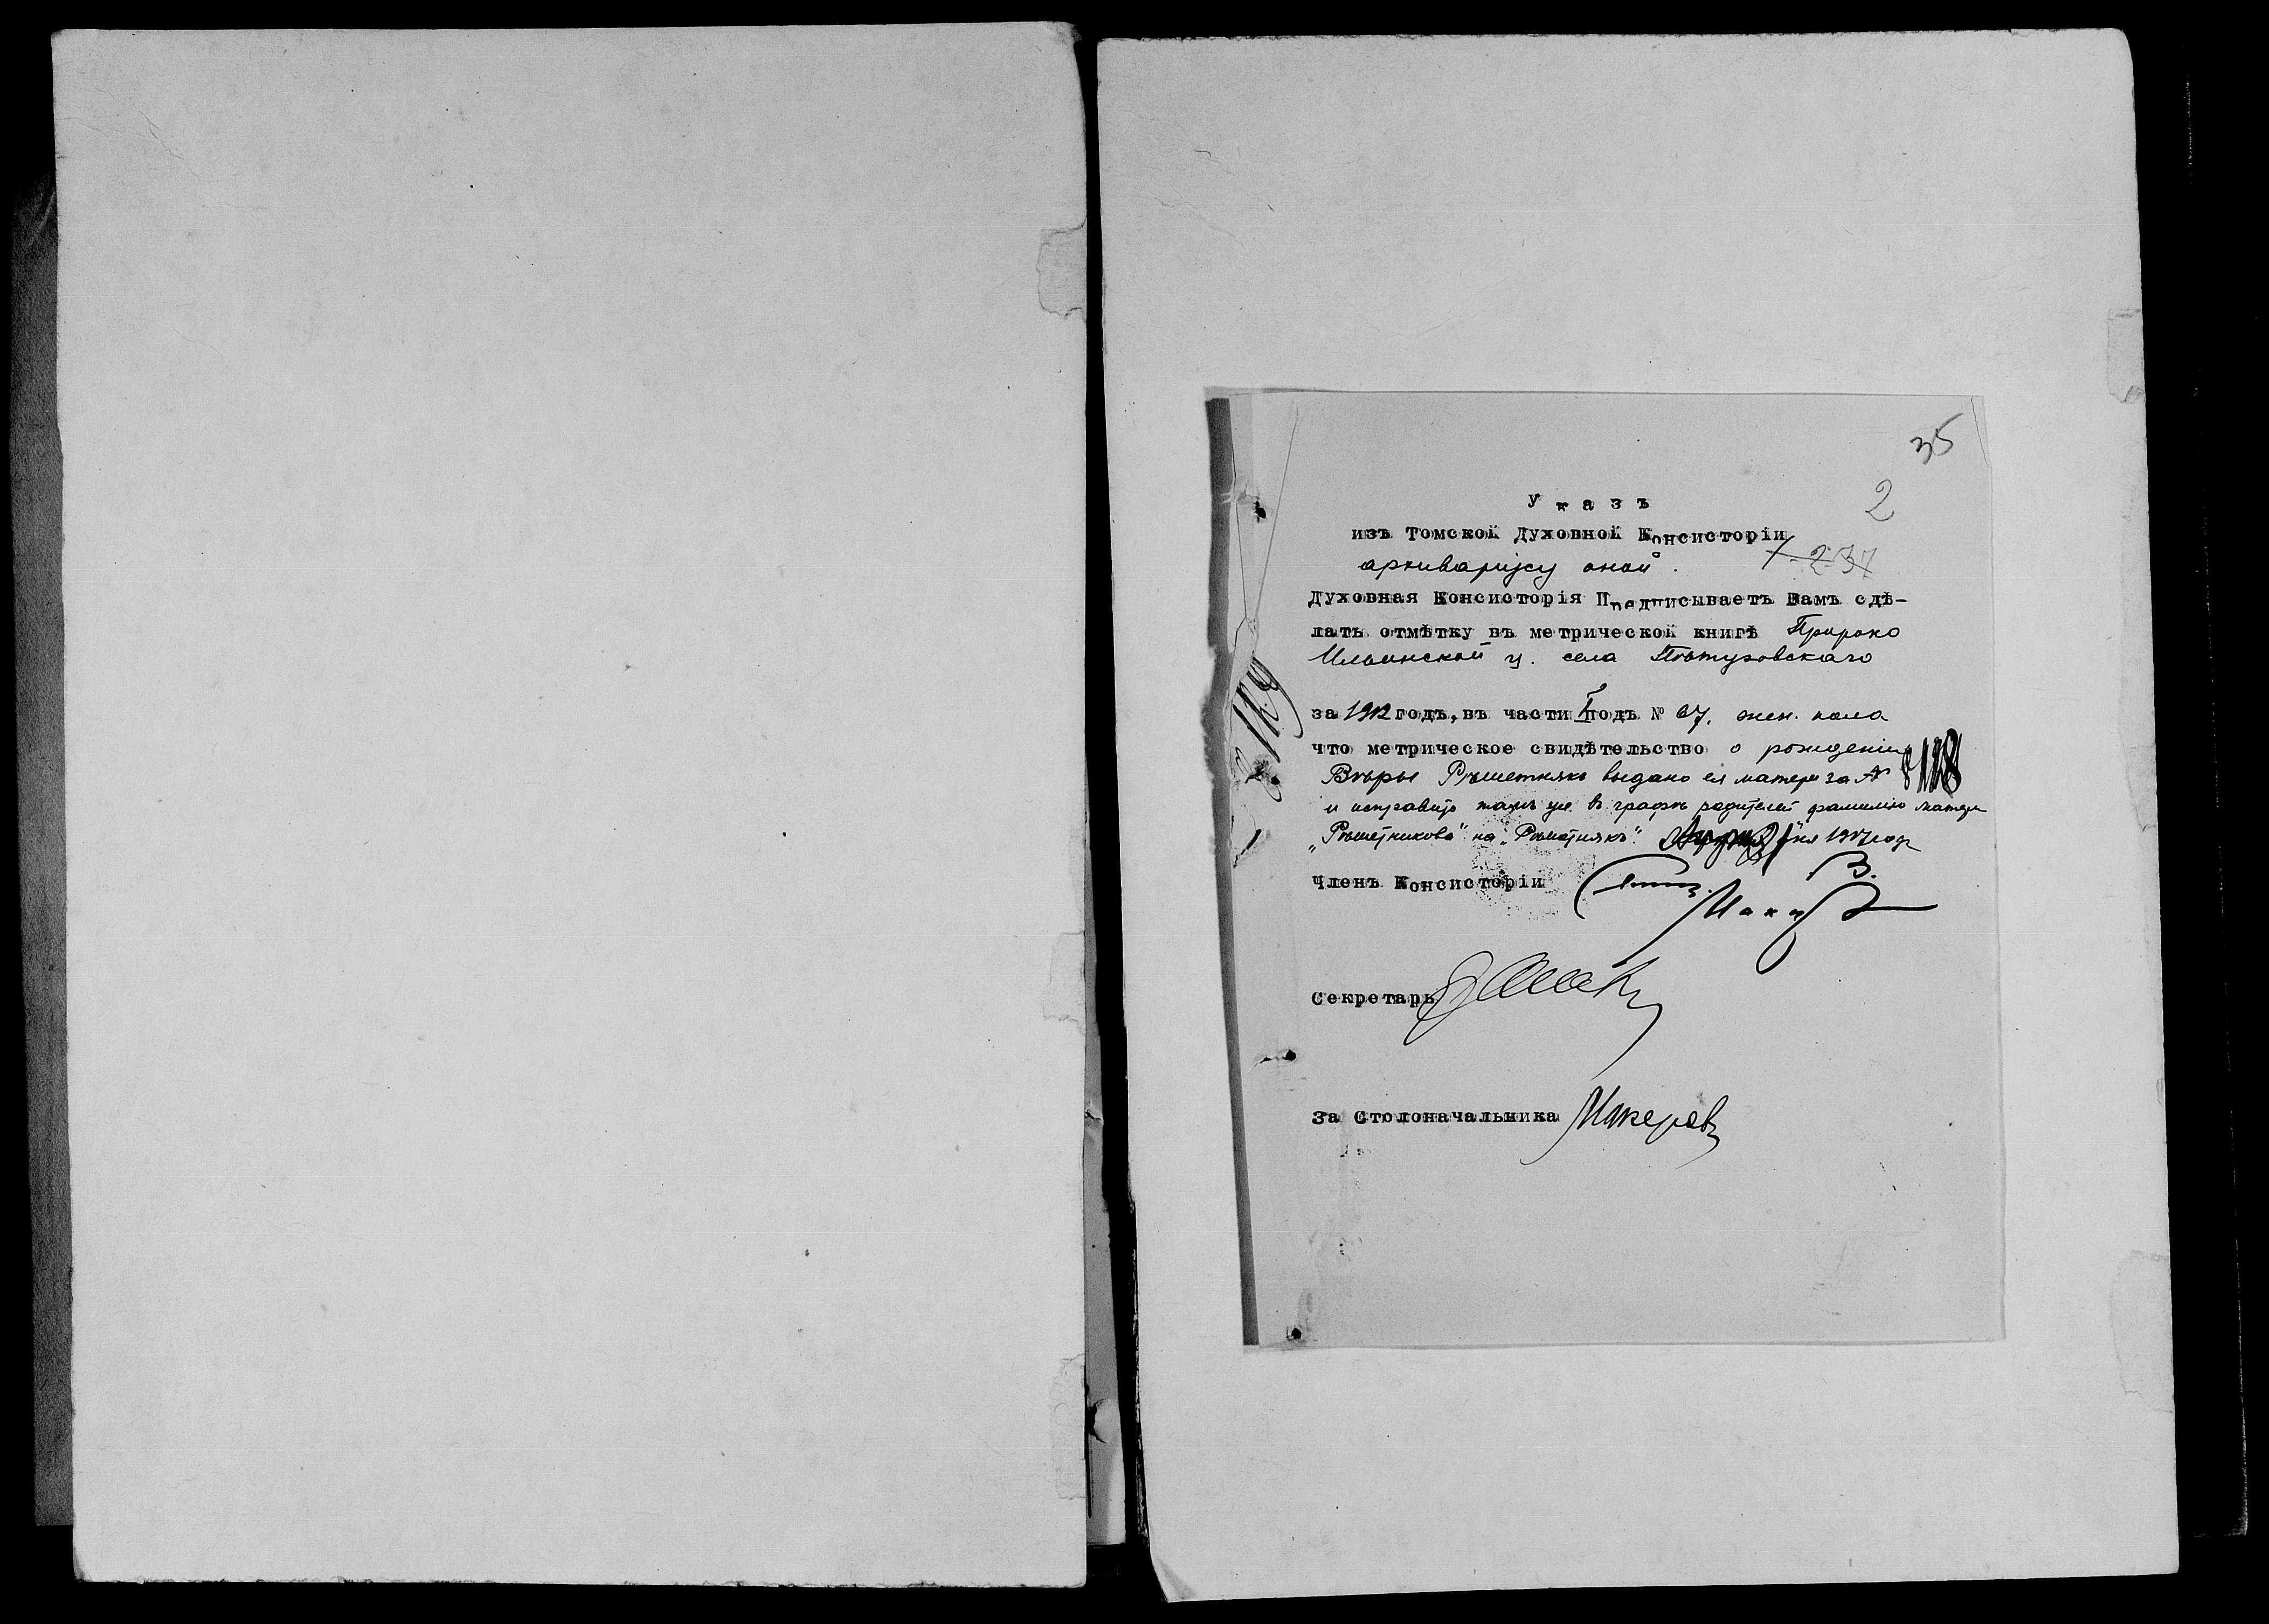 35
2
Указъ
изъ Томской Духовной Консисторіи
237
архиваріусу оной.
Духовная Консисторія Предписываетъ Вамъ сдѣ-
лать отмѣтку въ метрической книгѣ Пророко
Ильинской ц. села
за 1912 годъ, въ части I подъ № 67. жен. пола
что метрическое свидѣтельство о рожденіи
Вѣры Рѣшетнякъ выдано ея матери за № 8118
и исправить тамъ же въ графѣ родителей фамилію матери
„Рѣшетникова" на „Рѣшетнякъ". 1917 года
Членъ Консисторіи
Секретарь
За Столоначальника